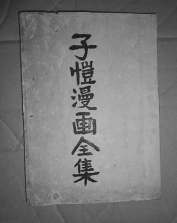 子愷漫画全集